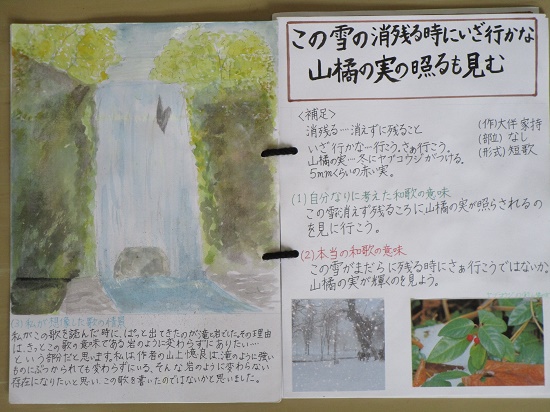 (3) 私が想像した歌の情景
私がこの歌を読んだ時に、ぱっと出てきたのが滝と岩でした。その理由
は、きっとこの歌の意味である岩のように変わらずにありたい…
という部分だと思います。私は、作者の山上憶良は、滝のように強い
ものにぶつかられても変わらずにいる、そんな岩のように変わらない
存在になりたいと思い、この歌を書いたのではないかと思いました。
この雪の消残る時にいざ行かな
山橘の実の照るも見む
<補足>
消残る…消えずに残ること
いざ行かな…行こう。さあ行こう。
山橘の実…冬にヤブコウジがつける。
5mmくらいの赤い実。
(作)大伴家持
(部立)なし
(形式)短歌
(1)自分なりに考えた和歌の意味
この雪が消えず残るころに山橘の実が照らされるの
を見に行こう。
(2)本当の和歌の意味
この雪がまだらに残る時にさあ行こうではないか。
山橘の実が輝くのを見よう。